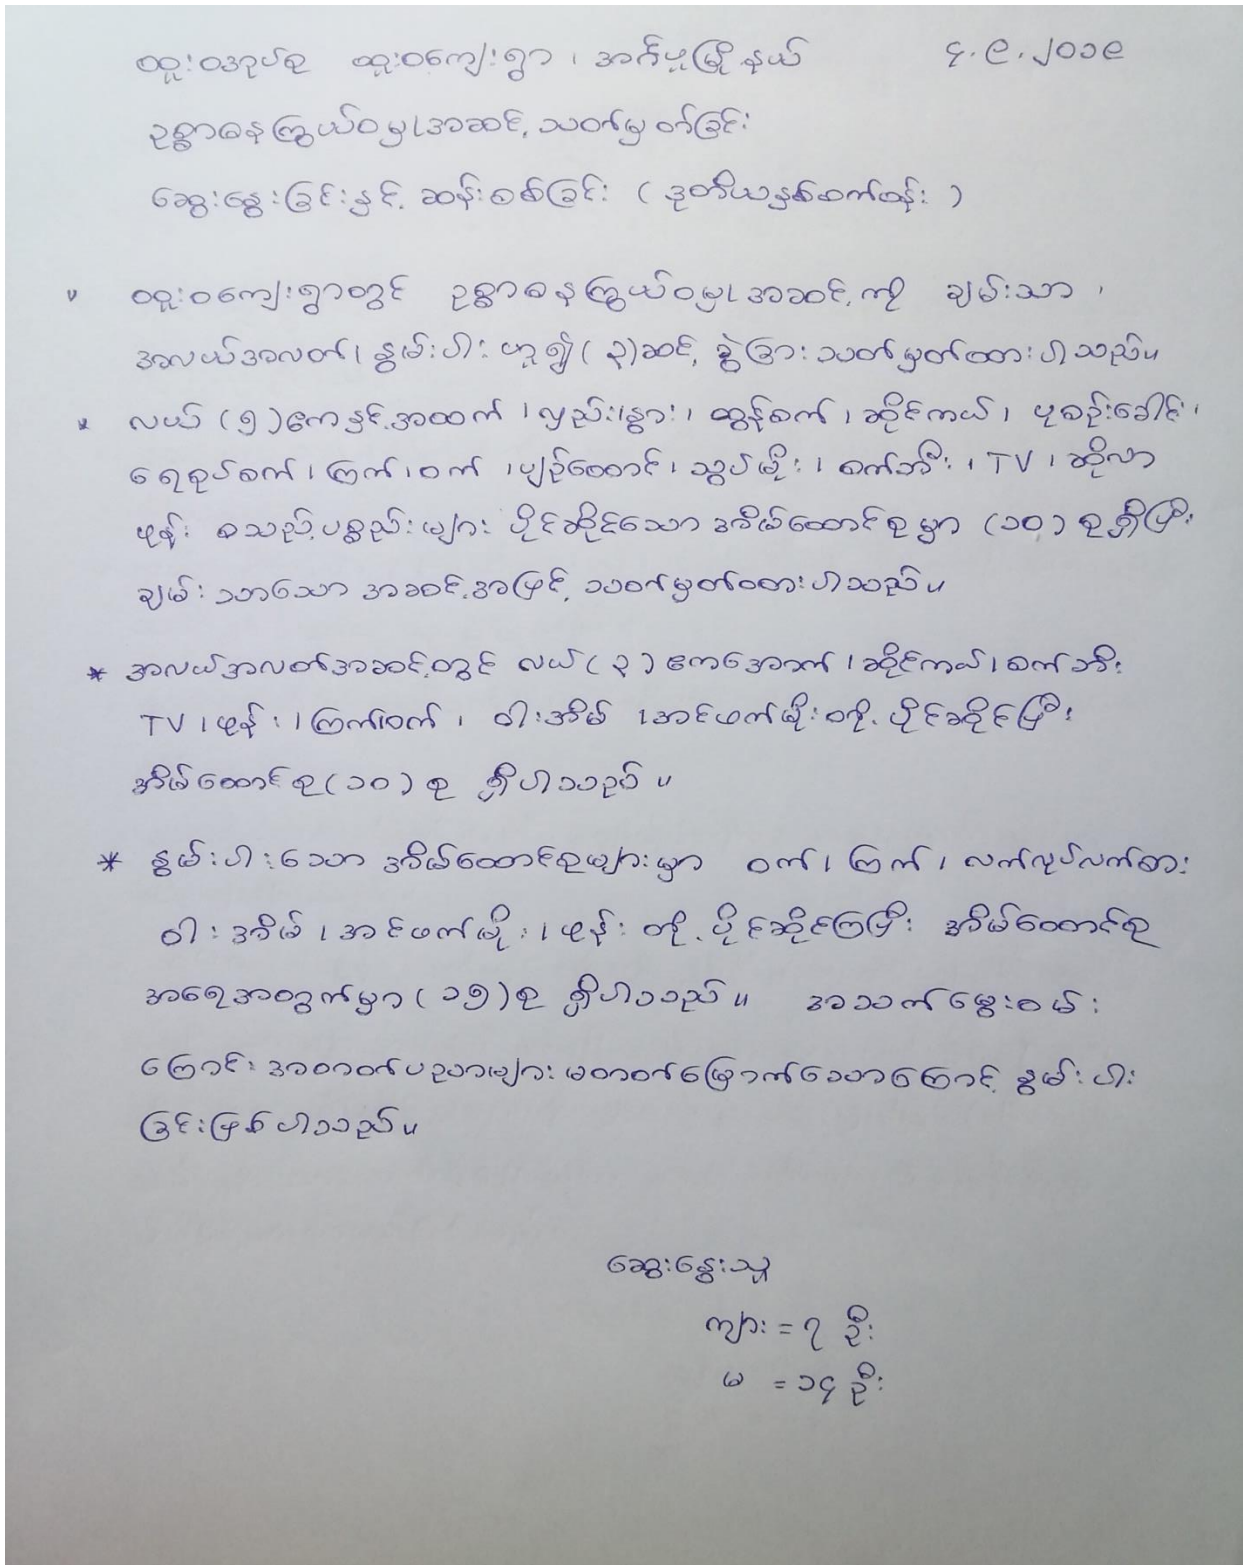 ထူးဝအုပ်စု ထူးဝကျေးရွာ ၊ အင်္ဂပူမြို့နယ် ၄.၉.၂၀၁၉
ဥစ္စာဓနကြွယ်ဝမှု၊ အဆင့် သတ်မှတ်ခြင်း
ဆွေးနွေးခြင်းနှင့် ဆန်းစစ်ခြင်း ( ဒုတိယနှစ်စက်ဝန်း )
* ထူးဝကျေးရွာတွင် ဥစ္စာဓနကြွယ်ဝမှု၊ အဆင့်ကို ချမ်းသာ ၊
အလယ်အလတ်၊ နွမ်းပါး ဟူ၍ ( ၃ )ဆင့် ခွဲခြားသတ်မှတ်ထားပါသည်။
* လယ် (၅)ဧကနှင့်အထက် ၊ လှည်း၊ နွား ၊ ထွန်စက် ၊ ဆိုင်ကယ် ၊ ပုစဉ်းခေါင်း ၊
ရေစုပ်စက် ၊ ကြက် ၊ ဝက် ၊ ပျဉ်ထောင် ၊ သွပ်မိုး ၊ စက်ဘီး ၊ TV ၊ ဆိုလာ
ဖုန်း စသည့်ပစ္စည်းများ ပိုင်ဆိုင်သော အိမ်ထောင်စုမှာ (၁၀) စုရှိပြီး
ချမ်းသာသော အဆင့်အဖြင့် သတ်မှတ်ထားပါသည်။
* အလယ်အလတ်အဆင့်တွင် လယ် ( ၃ ) ဧကအောက် ၊ ဆိုင်ကယ် ၊ စက်ဘီး
TV ၊ ဖုန်း ၊ ကြက်၊ ဝက် ၊ ဝါးအိမ် ၊ အင်ဖက်မိုး တို့ ပိုင်ဆိုင်ပြီး
အိမ်ထောင်စု (၁၀) စု ရှိပါသည် ။
* နွမ်းပါးသော အိမ်ထောင်စုများမှာ ဝက် ၊ ကြက် ၊ လက်လုပ်လက်စား
ဝါးအိမ် ၊ အင်ဖက်မိုး ၊ ဖုန်း တို့ ပိုင်ဆိုင်ကြပြီး အိမ်ထောင်စု
အရေအတွက်မှာ (၁၅) စု ရှိပါသည်။ အသက်မွေးဝမ်း
ကြောင်း အတတ်ပညာများ မတတ်မြောက်သောကြောင့် နွမ်းပါး
ခြင်းဖြစ်ပါသည်။
ဆွေးနွေးသူ
ကျား = ၇ ဦး
မ = ၁၄ ဦး